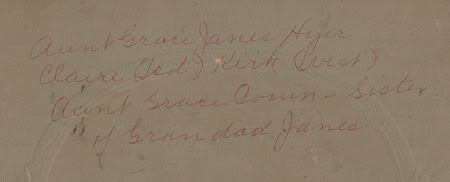 Aunt Grace Janes Hyer
Claire (Ted) Kirk (West)
Aunt Grace Cowin - Sister
of Grandad Janes